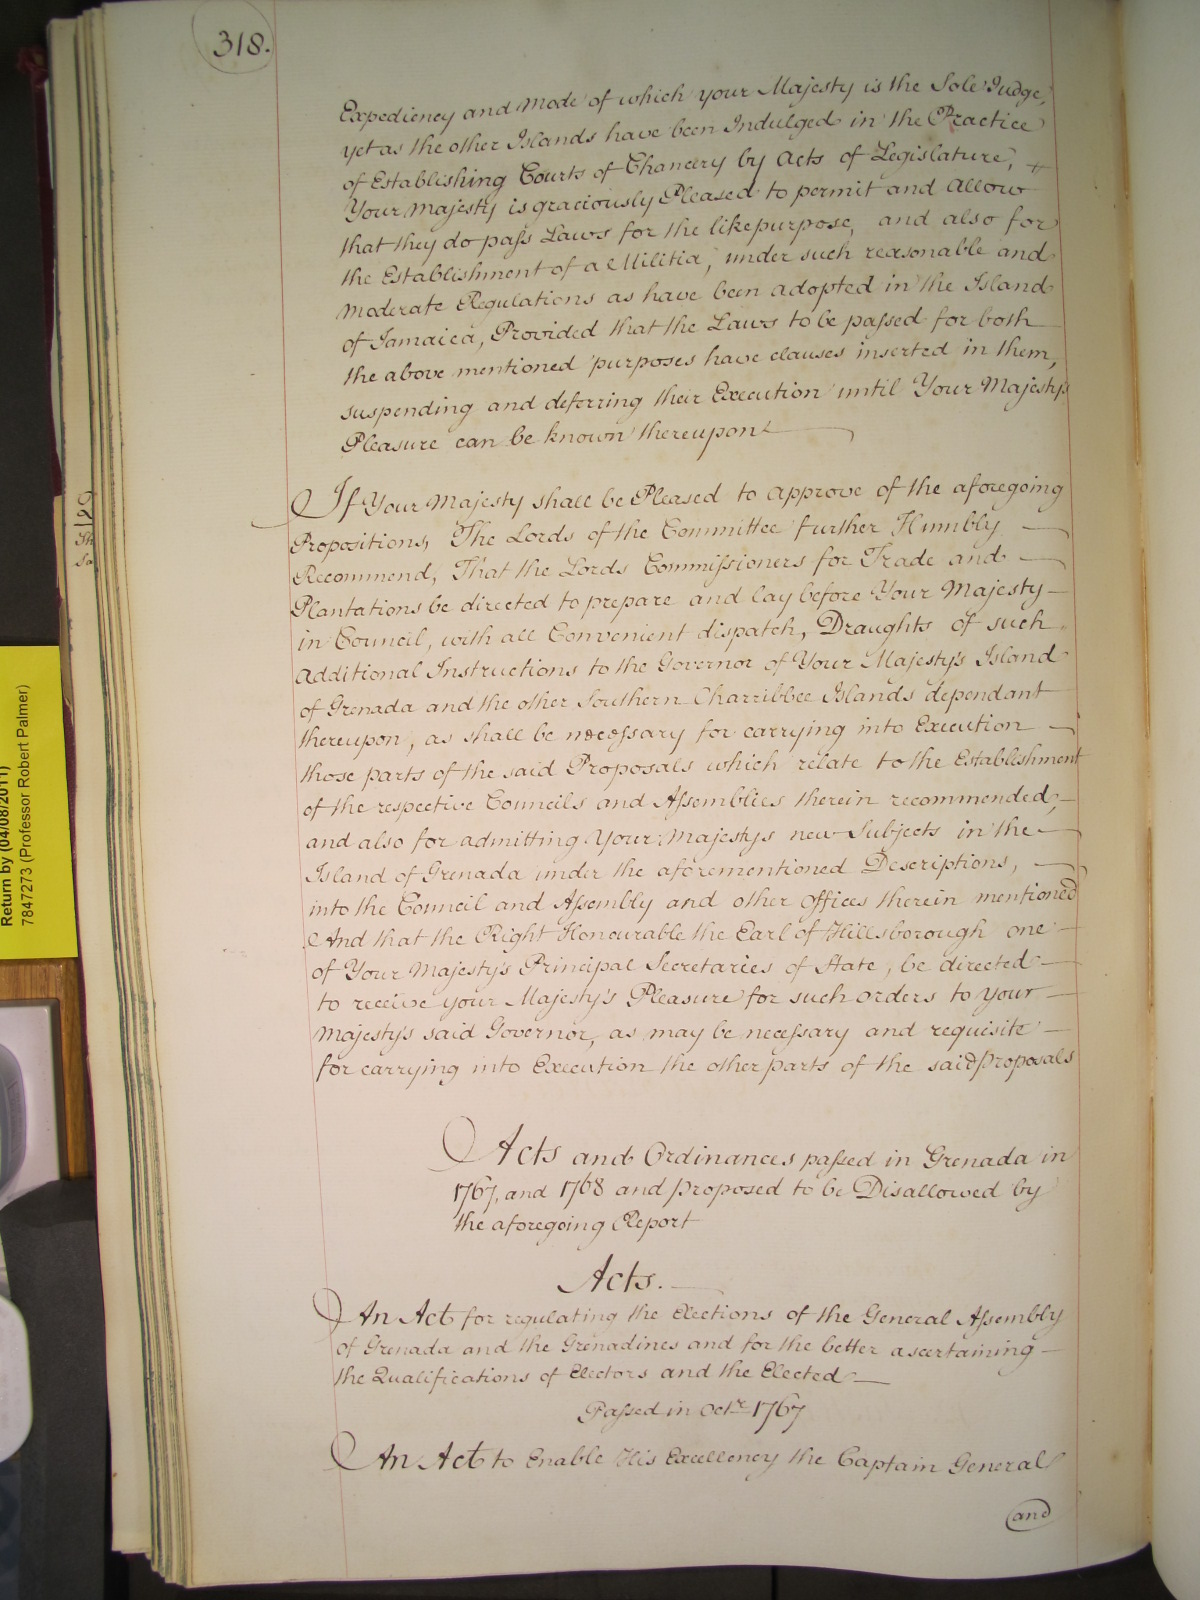 318.
Expediency and Mode of which your Majesty is the Sole Judge,
yet as the other Islands have been Indulged in the Practice
of Establishing Courts of Chancery by Acts of Legislature,
Your Majesty is graciously Pleased to permit and Allow
that they do pass Laws for the like purpose, and also for
the Establishment of a Militia, under such reasonable and
Moderate Regulations as have been adopted in the Island
of Jamaica, Provided that the Laws to be passed for both
the above mentioned purposes have clauses inserted in them,
suspending and deferring their Execution until Your Majestys
Pleasure can be known thereupon
If Your Majesty shall be Pleased to approve of the aforegoing
Propositions, The Lords of the Committee further Humbly
Recommend, That the Lords Commissioners for Trade and
Plantations be directed to prepare and lay before Your Majesty
in Council, with all Convenient dispatch, Draughts of such
Additional Instructions to the Governor of Your Majesty's Island
of Grenada and the other Southern Charribbee Islands dependant
thereupon, as shall be necessary for carrying into Execution
those parts of the said Proposals which relate to the Establishment
of the respective Councils and Assemblies therein recommended,
and also for admitting Your Majestys new Subjects in the
Island of Grenada under the aforementioned Descriptions,
into the Council and Assembly and other Offices therein mentioned
And that the Right Honourable the Earl of Hillsborough one
of Your Majesty's Principal Secretaries of State, be directed
to receive your Majesty's Pleasure for such orders to your
Majesty's said Governor, as may be necessary and requisite
for carrying into Execution the other parts of the said Proposals
Acts and Ordinances passed in Grenada in
1767, and 1768 and proposed to be Disallowed by
the aforegoing Report
Acts.
An Act for regulating the Elections of the General Assembly
of Grenada and the Grenadines and for the better ascertaining
the Qualifications of Electors and the Elected
Passed in Octr 1767
An Act to Enable His Excellency the Captain General
and
Return by (04/08/2011)
7847273 (Professor Robert Palmer)